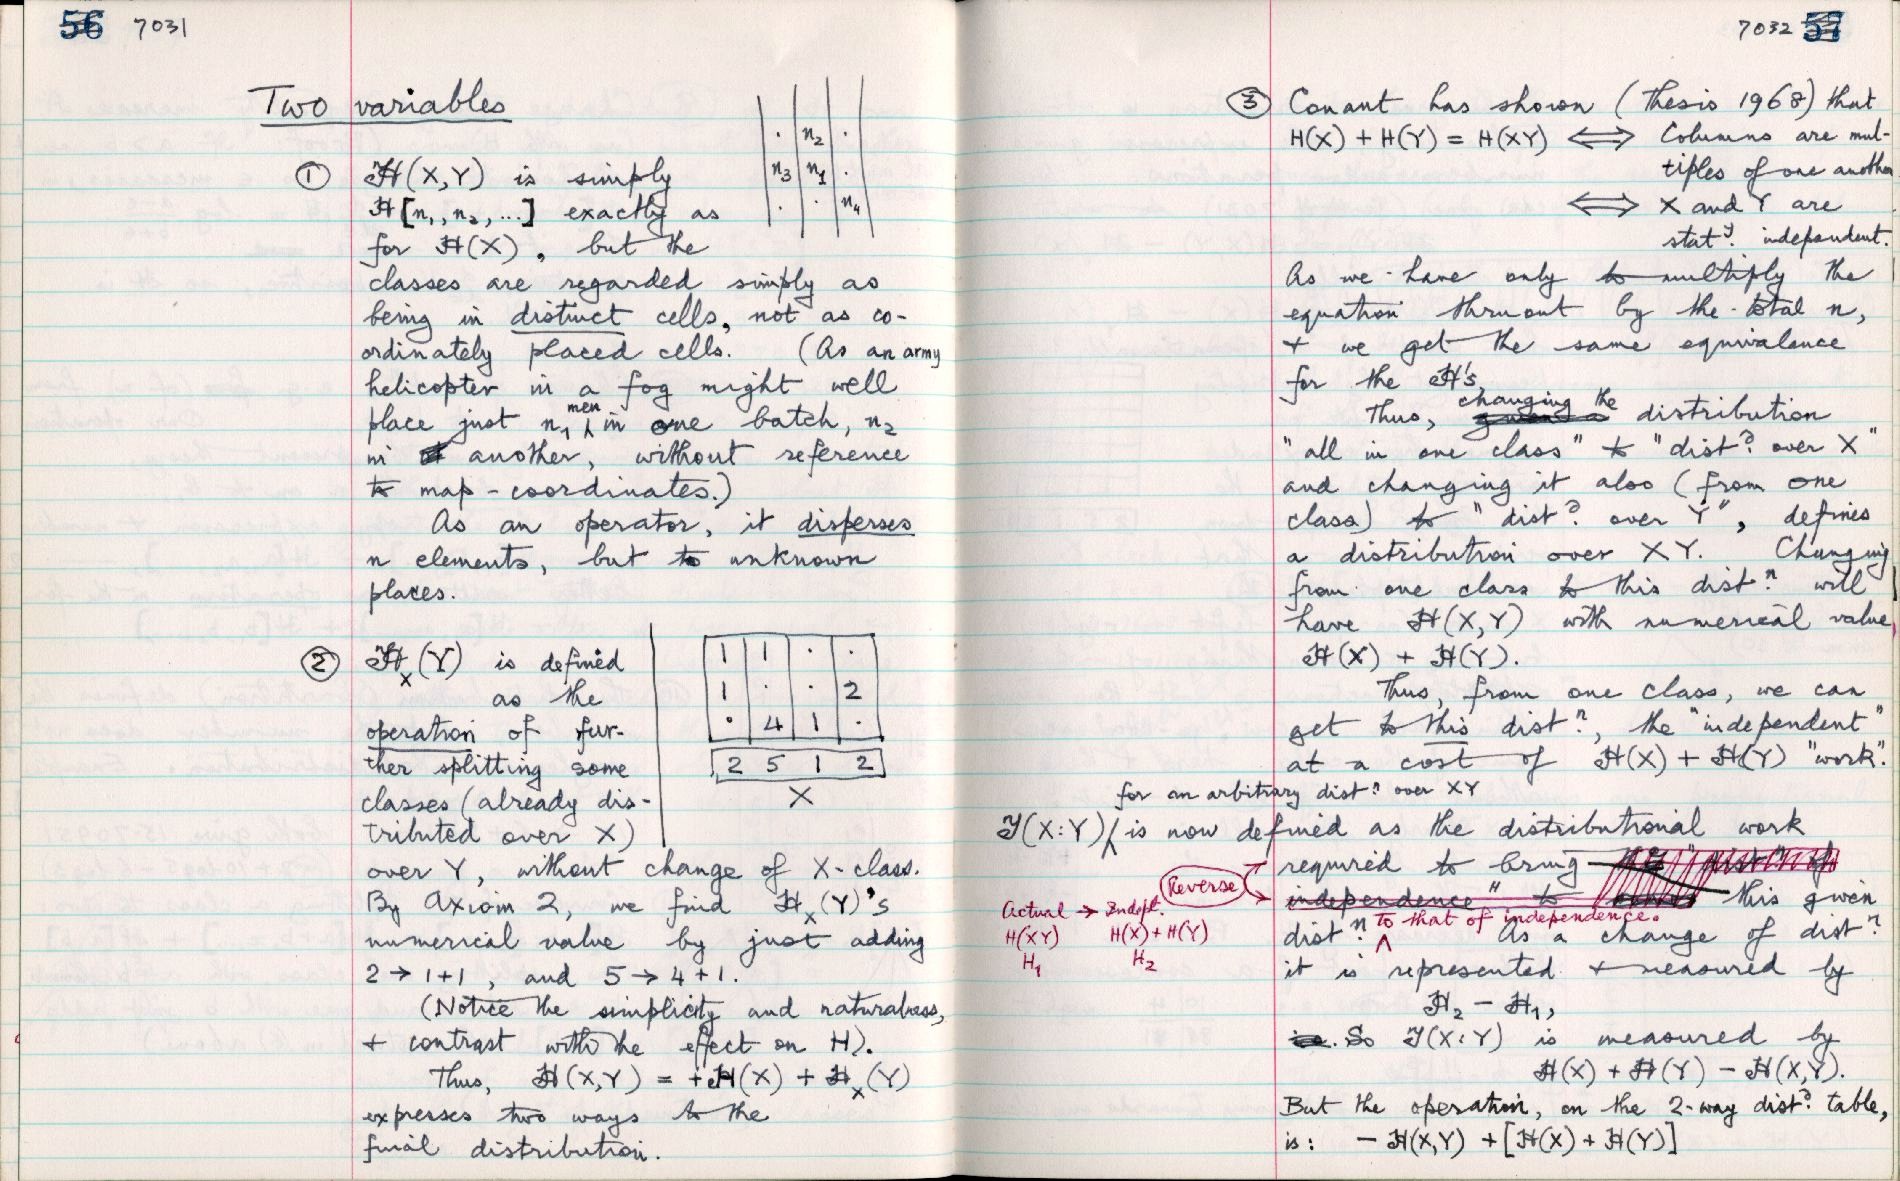 56 7031
Two variables
· n₂ ·
n₃ n₁ ·
· · n₄
① ℋ(X,Y) is simply
ℋ[n₁, n₂, ...] exactly as
for ℋ(X), but the
classes are regarded simply as
being in distinct cells, not as co-
ordinately placed cells. (As an army
helicopter in a fog might well
place just n₁ men in one batch, n₂
in another, without reference
to map-coordinates.)
As an operator, it disperses
n elements, but to unknown
places.
② ℋₓ(Y) is defined
as the
operation of fur-
ther splitting some
classes (already dis-
tributed over X)
1 1 · ·
1 · · 2
· 4 1 ·
2 5 1 2
X
over Y, without change of X-class.
By Axiom 2, we find ℋₓ(Y)'s
numerical value by just adding
2 → 1+1, and 5 → 4+1.
(Notice the simplicity and naturalness,
+ contrast with the effect on H).
Thus, ℋ(X,Y) = +ℋ(X) + ℋₓ(Y)
expresses two ways to the
final distribution.
7032 57
③ Conant has shown (Thesis 1968) that
H(X) + H(Y) = H(XY) ⟺ Columns are mul-
tiples of one another
⟺ X and Y are
statʸ. independent.
As we have only to multiply the
equation thruout by the total n,
+ we get the same equivalence
for the ℋ's.
Thus, changing the distribution
"all in one class" to "distⁿ over X"
and changing it also (from one
class) to "distⁿ over Y", defines
a distribution over XY. Changing
from one class to this distⁿ will
have ℋ(X,Y) with numerical value
ℋ(X) + ℋ(Y).
Thus, from one class, we can
get to this distⁿ, the "independent"
at a cost of ℋ(X) + ℋ(Y) "work".
for an arbitrary distⁿ over XY
𝒥(X:Y) is now defined as the distributional work
required to bring
independence" to this given
distⁿ to that of independence. As a change of distⁿ
Reverse
Actual → Indept.
H(XY) H(X)+H(Y)
H₁ H₂
it is represented + measured by
ℋ₂ − ℋ₁,
So 𝒥(X:Y) is measured by
ℋ(X) + ℋ(Y) − ℋ(X,Y).
But the operation, on the 2-way distⁿ table,
is: − ℋ(X,Y) + [ℋ(X) + ℋ(Y)]